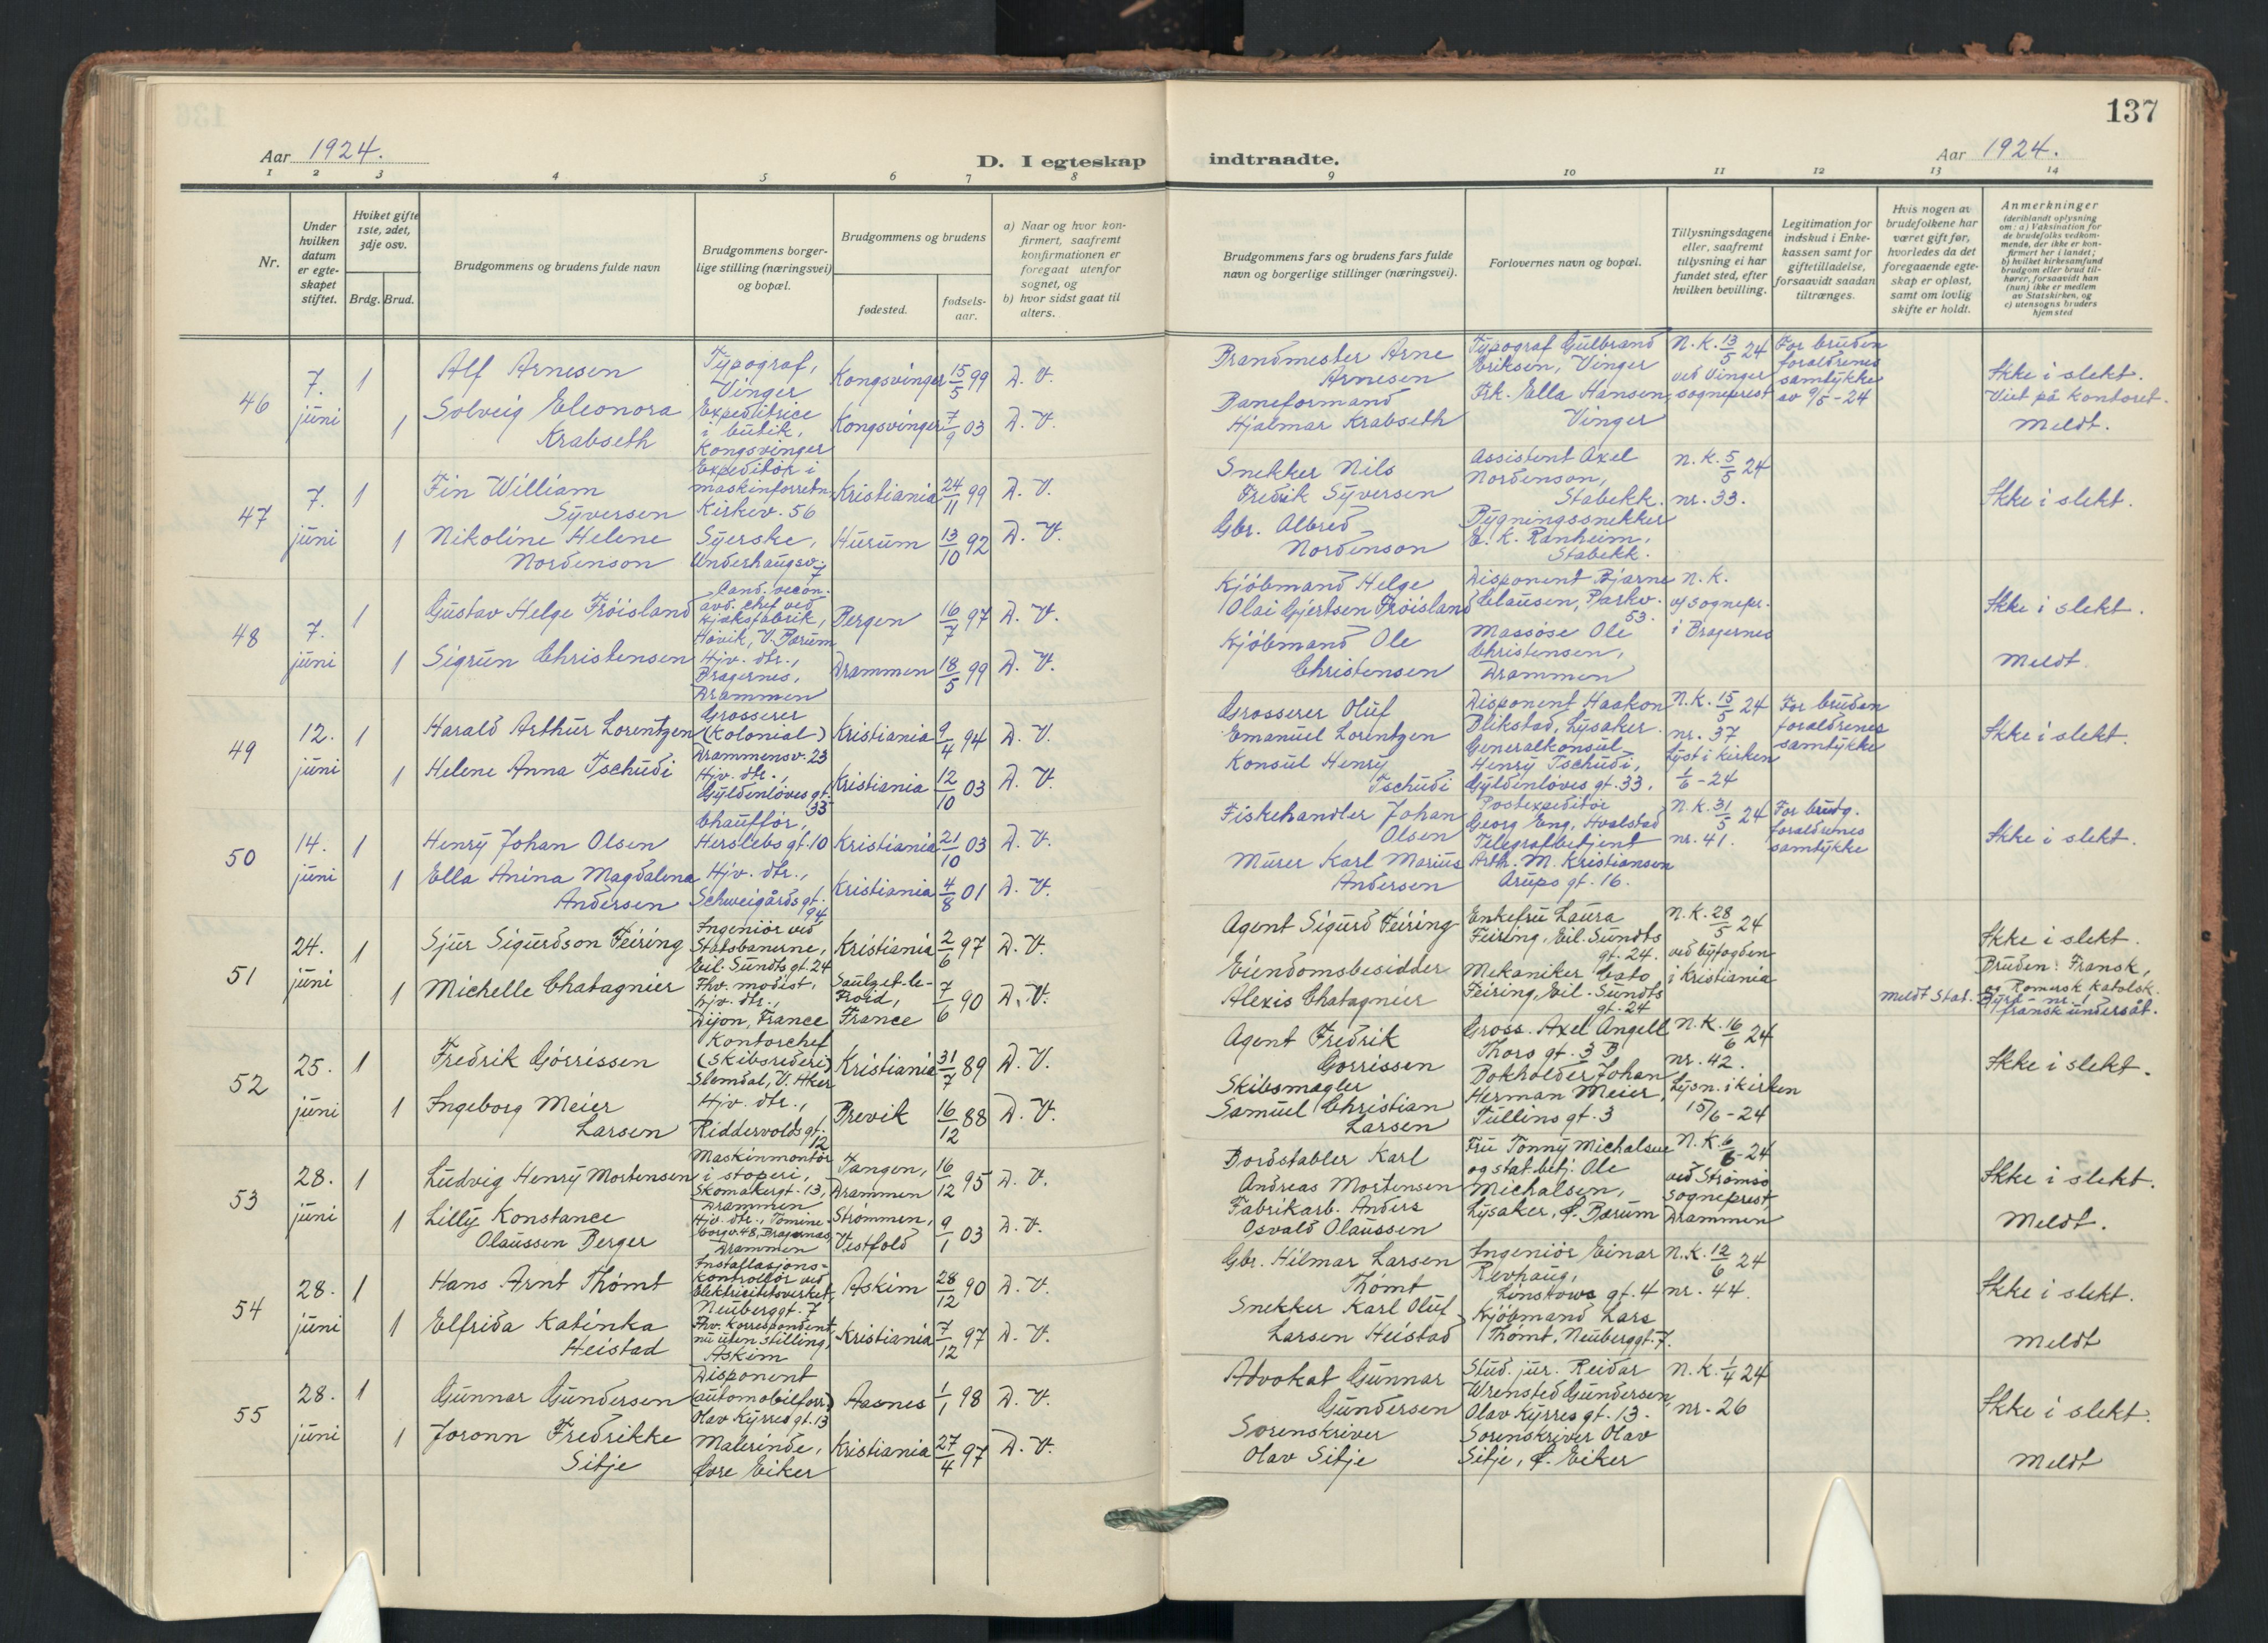 137
Aar 1924.
D. I egteskap indtraadte.
Aar 1924.
1 2 3 4 5 6 7 8 9 10 11 12 13 14
Nr.
Under hvilken datum er egteskapet stiftet.
Hvilket gifte 1ste, 2det, 3dje osv.
Brdg. Brud.
Brudgommens og brudens fulde navn
Brudgommens borgerlige stilling (næringsvei) og bopæl.
Brudgommens og brudens
fødested.
fødselsaar.
a) Naar og hvor konfirmert, saafremt konfirmationen er foregaat utenfor sognet, og
b) hvor sidst gaat til alters.
Brudgommens fars og brudens fars fulde navn og borgerlige stillinger (næringsvei).
Forlovernes navn og bopæl.
Tillysningsdagene eller, saafremt tillysning ei har fundet sted, efter hvilken bevilling.
Legitimation for indskud i Enkekassen samt for giftetilladelse, forsaavidt saadan tiltrænges.
Hvis nogen av brudefolkene har været gift før, hvorledes da det foregaaende egteskap er opløst, samt om lovlig skifte er holdt.
Anmerkninger
(deriblandt oplysning om: a) Vaksination for de brudefolks vedkommende, der ikke er konfirmert her i landet; b) hvilket kirkesamfund brudgom eller brud tilhører, forsaavidt han (hun) ikke er medlem av Statskirken, og c) utensogns bruders hjemsted
46
7. juni
1
Alf Arnesen
Typograf, Vinger
Kongsvinger 15/5 99 D. V.
Brandmester Arne Arnesen
Typograf Gulbrand Eriksen, Vinger
N.K. 13/5 24 ved Vinger sogneprest
For bruden foraldrenes samtykke av 9/5-24
Ikke i slekt.
Viet på kontoret.
1
Solveig Eleonora Krabseth
Expeditrice i butik, Kongsvinger
Kongsvinger 7/9 03 D. V.
Baneformand Hjalmar Krabseth
Frk. Ella Hansen, Vinger
Meldt.
47
7. juni
1
Fin William Syversen
Expeditør i maskinforretn. Kirkev. 56
Kristiania 24/11 99 D. V.
Snekker Nils Fredrik Syversen
Assistent Axel Nordenson, Stabekk.
N.K. 5/5 24 nr. 33.
Ikke i slekt.
1
Nikoline Helene Nordenson
Syerske, Underhaugsv. 7
Hurum 13/10 92 D. V.
Gbr. Albred Nordenson
Bygningssnekker E. K. Ranheim, Stabekk.
48
7. juni
1
Gustav Helge Frøisland
Cand. oecon. avd. chef ved kjæksfabrik, Høvik, V. Bærum
Bergen 16/7 97 D. V.
Kjøbmand Helge Olai Gjertsen Frøisland
Disponent Bjarne Clausen, Parkv. 53.
N.K. v/ sognepr. i Bragernes
Ikke i slekt.
1
Sigrun Christensen
Hjv. dtr., Bragernes, Drammen
Drammen 18/5 99 D. V.
Kjøbmand Ole Christensen
Massøse Ole Christensen, Drammen
Meldt.
49
12. juni
1
Harald Arthur Lorentzen
Grosserer (Kolonial) Drammensv. 23
Kristiania 9/4 94 D. V.
Grosserer Oluf Emanuel Lorentzen
Disponent Haakon Blikstad, Lysaker.
N.K. 15/5 24 nr. 37
Lyst i kirken 1/6-24
For bruden foraldrenes samtykke
Ikke i slekt.
1
Helene Anna Tschudi
Hjv. dtr., Gyldenløves gt. 33
Kristiania 12/10 03 D. V.
Konsul Henry Tschudi
Generalkonsul Henry Tschudi, Gyldenløves gt. 33.
50
14. juni
1
Henry Johan Olsen
Chauffør, Herslebs gt. 10
Kristiania 21/10 03 D. V.
Fiskehandler Johan Olsen
Postexpeditør Georg Eng, Hvalstad
N.K. 31/5 24 nr. 41.
For brudg. foraldrenes samtykke
Ikke i slekt.
1
Ella Anina Magdalena Andersen
Hjv. dtr., Schweigårds gt. 94
Kristiania 4/8 01 D. V.
Murer Karl Marius Andersen
Telegrafbetjent Arth. M. Kristiansen Arups gt. 16.
51
24. juni
1
Sjur Sigurdson Feiring
Ingeniør ved Statsbanerne, Eil. Sundts gt. 24
Kristiania 2/6 97 D. V.
Agent Sigurd Feiring
Enkefru Laura Feiring, Eil. Sundts gt. 24.
N.K. 28/5 24 ved byfogden i Kristiania
Ikke i slekt.
Bruden: Fransk, og Romersk Katolsk.
1
Michelle Chatagnier
Fhv. modist, hjv. dtr., Dijon, France
France 7/6 90 D. V.
Eiendomsbesidder Alexis Chatagnier
Mekaniker Cato Feiring, Eil. Sundts gt. 24
Meldt Stat. Byrå - nr. 1
fransk undersåt.
52
25. juni
1
Fredrik Gørrissen
Kontorchef (Skibsrederi) Slemdal, V. Aker
Kristiania 31/7 89 D. V.
Agent Fredrik Gørrissen
Gross. Axel Angell Thors gt. 3 B
N.K. 16/6 24 nr. 42.
Lysn. i kirken 15/6-24
Ikke i slekt.
1
Ingeborg Meier Larsen
Hjv. dtr., Riddervolds gt. 12
Brevik 16/12 88 D. V.
Skibsmægler Samuel Christian Larsen
Bokholder Johan Herman Meier, Tullins gt. 3
53
28. juni
1
Ludvig Henry Mortensen
Maskinmontør i støperi, Skomakergt. 13, Drammen
Tangen, Drammen 16/12 95 D. V.
Bordstabler Karl Andreas Mortensen
Fru Tonny Michalsen og stat.betj. Ole Michalsen, Lysaker, Ø. Bærum
N.K. 6/6-24 ved Strømsø sogneprest, Drammen
Ikke i slekt.
1
Lilly Konstance Olaussen Berger
Hjv. dtr., Tomineborgv. 48, Bragernes, Drammen
Strømmen, Vestfold 9/1 03 D. V.
Fabrikarb. Anders Osvald Olaussen
Meldt.
54
28. juni
1
Hans Arnt Thømt
Installasjonskontrollør ved Elektricitetsverket, Neuberggt. 7
Askim 28/12 90 D. V.
Gbr. Hilmar Larsen Thømt
Ingeniør Einar Revhaug, Linstows gt. 4
N.K. 12/6 24 nr. 44.
Ikke i slekt.
1
Elfrida Katinka Heistad
Fhv. Korrespondent, nu uten stilling, Askim
Kristiania 7/12 97 D. V.
Snekker Karl Oluf Larsen Heistad
Kjøbmand Lars Thømt, Neuberggt. 7.
Meldt
55
28. juni
1
Gunnar Gundersen
Disponent (automobilforr.) Olav Kyrres gt. 13
Aasnes 1/1 98 D. V.
Advokat Gunnar Gundersen
Stud. jur. Reidar Wrensted Gundersen, Olav Kyrres gt. 13.
N.K. 1/4 24 nr. 26
Ikke i slekt.
1
Joronn Fredrikke Sitje
Malerinde, Øvre Eiker
Kristiania 27/4 97 D. V.
Sorenskriver Olav Sitje
Sorenskriver Olav Sitje, Ø. Eiker
Meldt